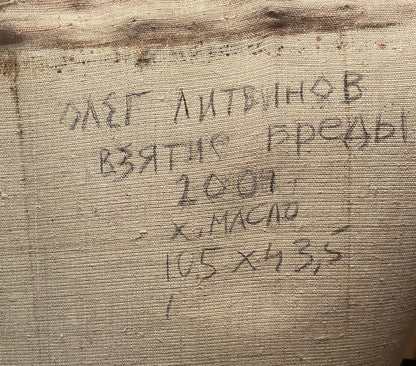 ОЛЕГ ЛИТВИНОВ
ВЗЯТИЕ БРЕДЫ
2009
Х, МАСЛО
105 X 43,5